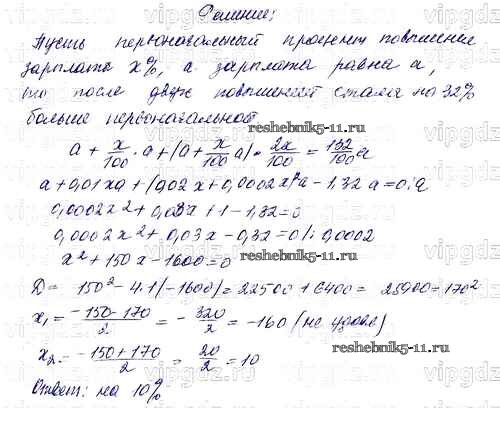 Решение:
Пусть первоначальный процент повышения
зарплаты x%, а зарплата равна a,
то после двух повышений стала на 32%
больше первоначальной
reshebnik5-11.ru
a + x/100 · a + (a + x/100 a) · 2x/100 = 132/100 a
a + 0,01xa + 0,02x + 0,0002x²a - 1,32a = 0 /: a
0,0002x² + 0,03x + 1 - 1,32 = 0
0,0002x² + 0,03x - 0,32 = 0 /: 0,0002
x² + 150x - 1600 = 0
D = 150² - 4·1·(-1600) = 22500 + 6400 = 28900 = 170²
x₁ = (-150-170)/2 = -320/2 = -160 (не удовл)
x₂ = (-150+170)/2 = 20/2 = 10
reshebnik5-11.ru
Ответ: на 10%
vipgdz